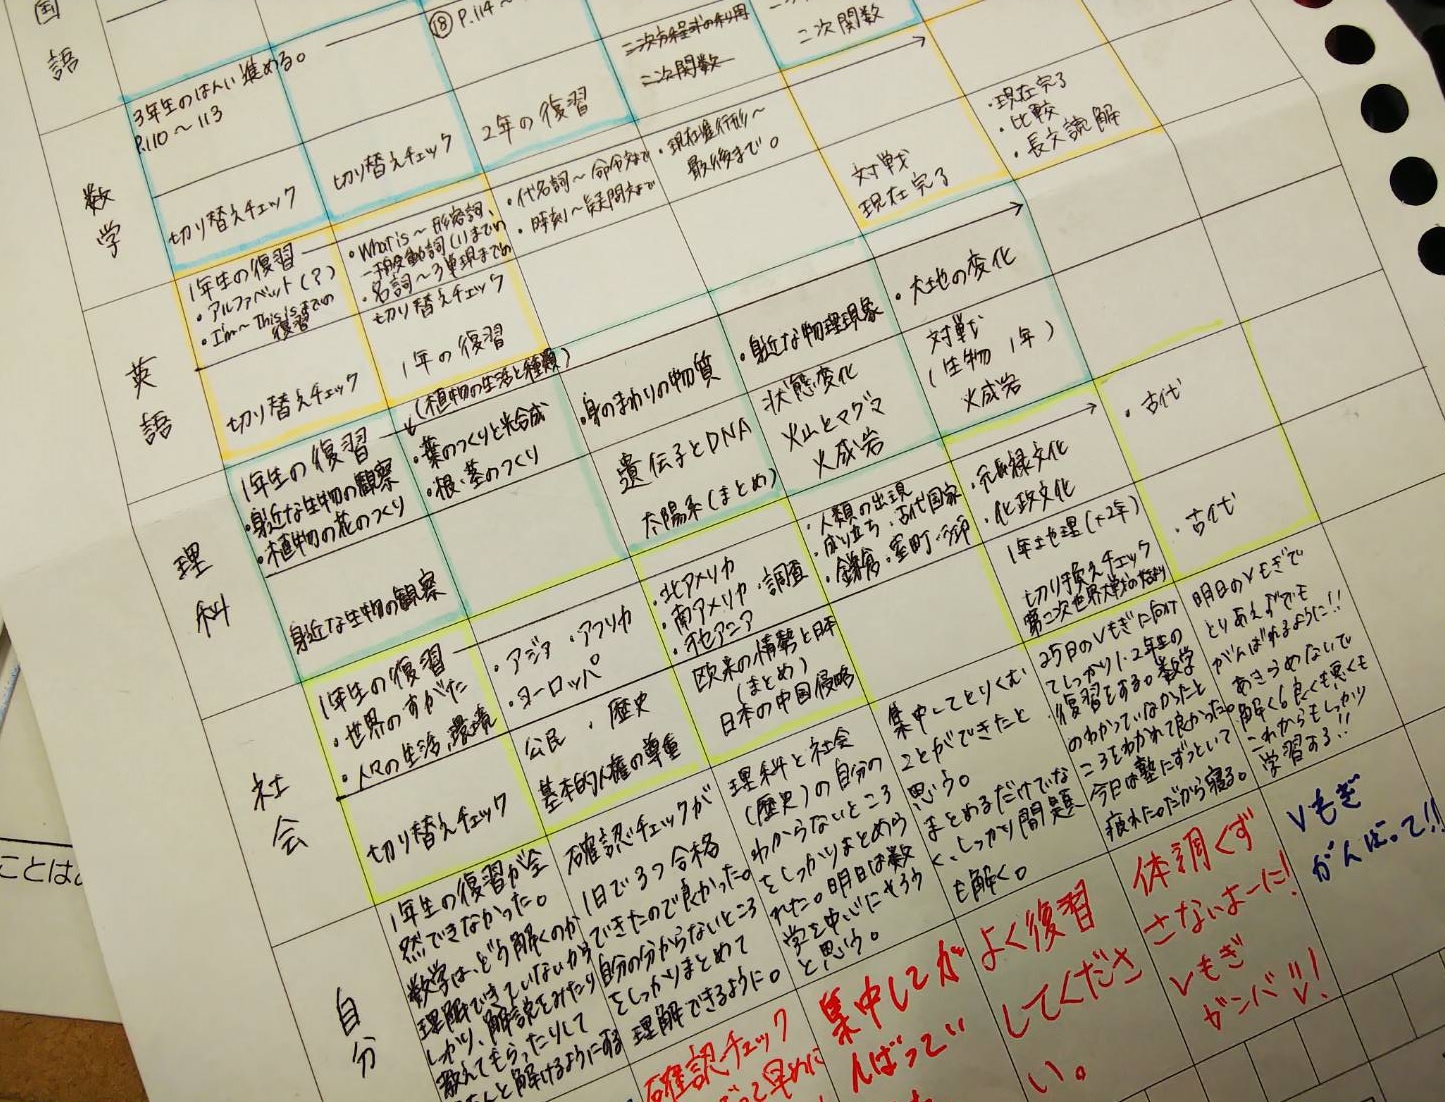 国語
⑱ P.114〜
二次方程式の利用
二次関数
二次関数
数学
3年生のはんい進める。
P.110〜113
切り替えチェック
切り替えチェック
2年の復習
英語
1年生の復習
・アルファベット(?)
・I'm〜This isまでの
復習
切り替えチェック
・What is〜形容詞、
一般動詞(1)までの
・名詞〜3単現までの
切り替えチェック
1年の復習
・代名詞〜命令文まで
・時刻〜疑問文まで
・現在進行形〜
最後まで。
対戦
現在完了
・現在完了
・比較
・長文読解
理科
1年生の復習
・身近な生物の観察
・植物の花のつくり
身近な生物の観察
(植物の生活と種類)
・葉のつくりと光合成
・根・茎のつくり
・身のまわりの物質
遺伝子とDNA
太陽系(まとめ)
・身近な物理現象
状態変化
火山とマグマ
火成岩
・大地の変化
対戦
(生物 1年)
火成岩
社会
1年生の復習
・世界のすがた
・人々の生活、環境
切り替えチェック
・アジア ・アフリカ
・ヨーロッパ
公民 ・歴史
基本的人権の尊重
・北アメリカ
・南アメリカ ・調査
・オセアニア
欧米の情勢と日本
(まとめ)
日本の中国侵略
・人類の出現
成り立ち・古代国家
・鎌倉・室町
・元禄文化
・化政文化
1年地理(+2年)
切り換えチェック
第二次世界大戦の始まり
・古代
・古代
自分
1年生の復習が全
然できなかった。
数学は、どう解くのか
理解できていないから
しっかり、解説をみたり
教えてもらったりして
ちゃんと解けるようにする
確認チェックが
1日で3つ合格
できたので良かった。
自分の分からないところ
をしっかりまとめて
理解できるように。
理科と社会
(歴史)の自分の
わからないところ
をしっかりまとめら
れた。明日は数
学を中心にやろう
と思う。
集中してとりくむ
ことができたと
思う。
まとめるだけでな
く、しっかり問題
も解く。
25日のVもぎに向け
てしっかり1・2年生の
復習をする。数学
のわかっていなかったと
ころをわかれて良かった。
今日は塾にずっといて
疲れた。だから寝る。
明日のVもぎで
とりあえずでも
がんばれるように!!
あきらめないで
解く&良くも悪くも
これからもしっかり
学習する!!
確認チェック
早めに
集中してが
んばってい
よく復習
してくださ
い。
体調くず
さないよーに!
Vもぎ
ガンバ!
Vもぎ
がんばって!!
ことは